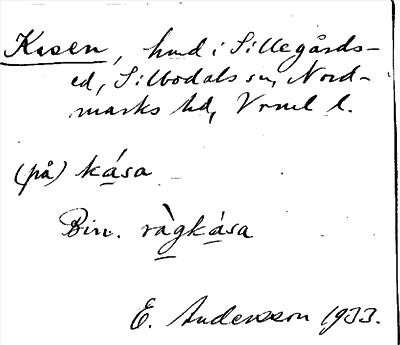 Kasen, hmd i Sillegårds-
ed, Silbodals sn, Nord-
marks hd, Vrml l.
(på) kása
Bin. ràgkása
E. Andersson 1933.